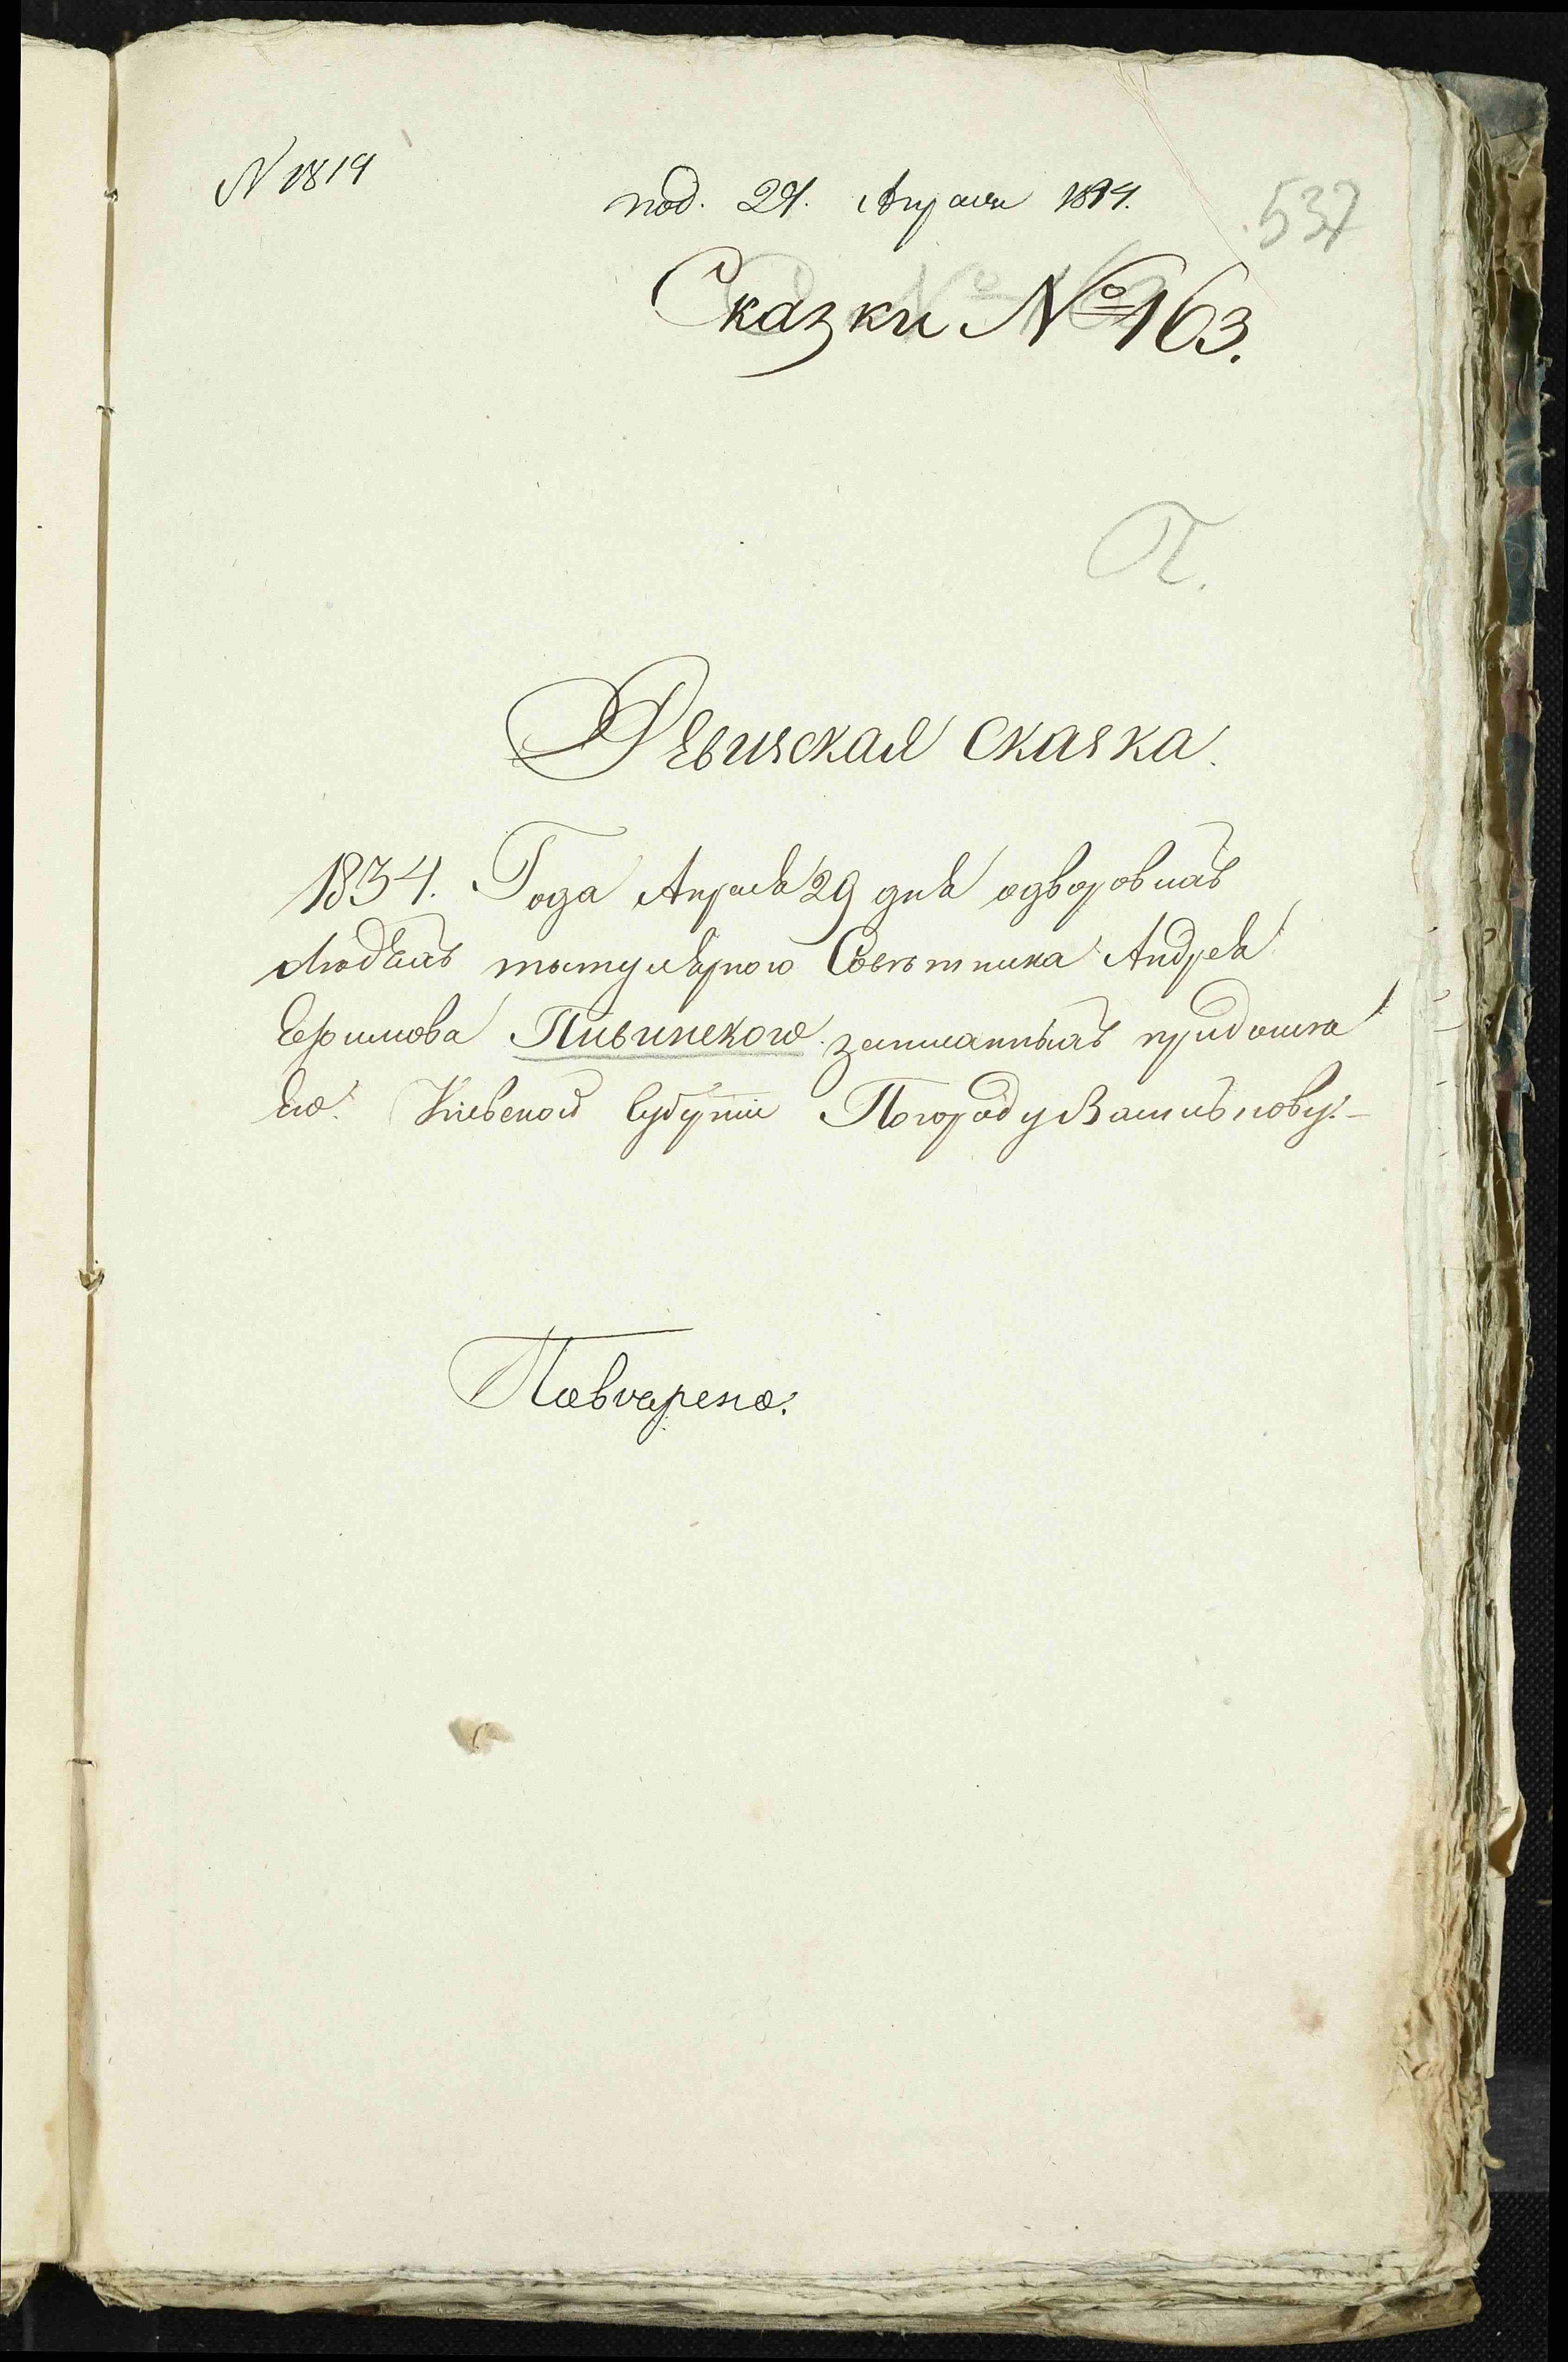 N 1819
под. 29. Апреля 1834.
537
Сказки № 163.
П.
Ревизская сказка.
1834. Года Апреля 29 дня одворовыхъ
людяхъ титулярного Советника Андрея
Ефимова Пивинского записанныхъ придомѣ
его. Киевской Губернии Погороду Василькову.
Поверено.